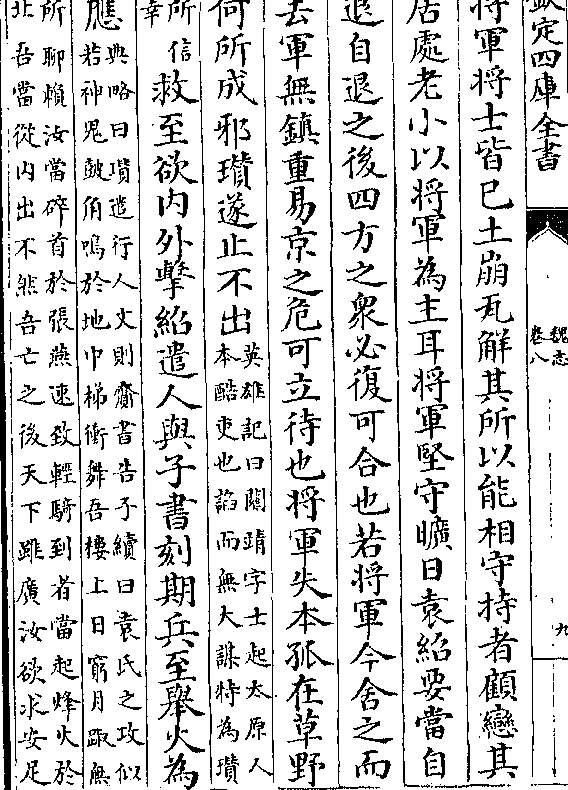 欽定四庫全書
魏志
卷八
九
將軍將士皆已土崩瓦解其所以能相守持者顧戀其
居處老小以將軍為主耳將軍堅守曠日袁紹要當自
退自退之後四方之衆必復可合也若將軍今舍之而
去軍無鎮重易京之危可立待也將軍失本孤在草野
何所成邪瓚遂止不出
英雄記曰關靖字士起太原人
本酷吏也諂而無大謀特為瓚
所信
幸
救至欲内外擊紹遣人與子書刻期兵至舉火為
應
典略曰瓚遣行人文則齎書告子續曰袁氏之攻似
若神鬼鼓角鳴於地中梯衝舞吾樓上日窮月踧無
所聊賴汝當碎首於張燕速致輕騎到者當起烽火於
北吾當從内出不然吾亡之後天下雖廣汝欲求安足